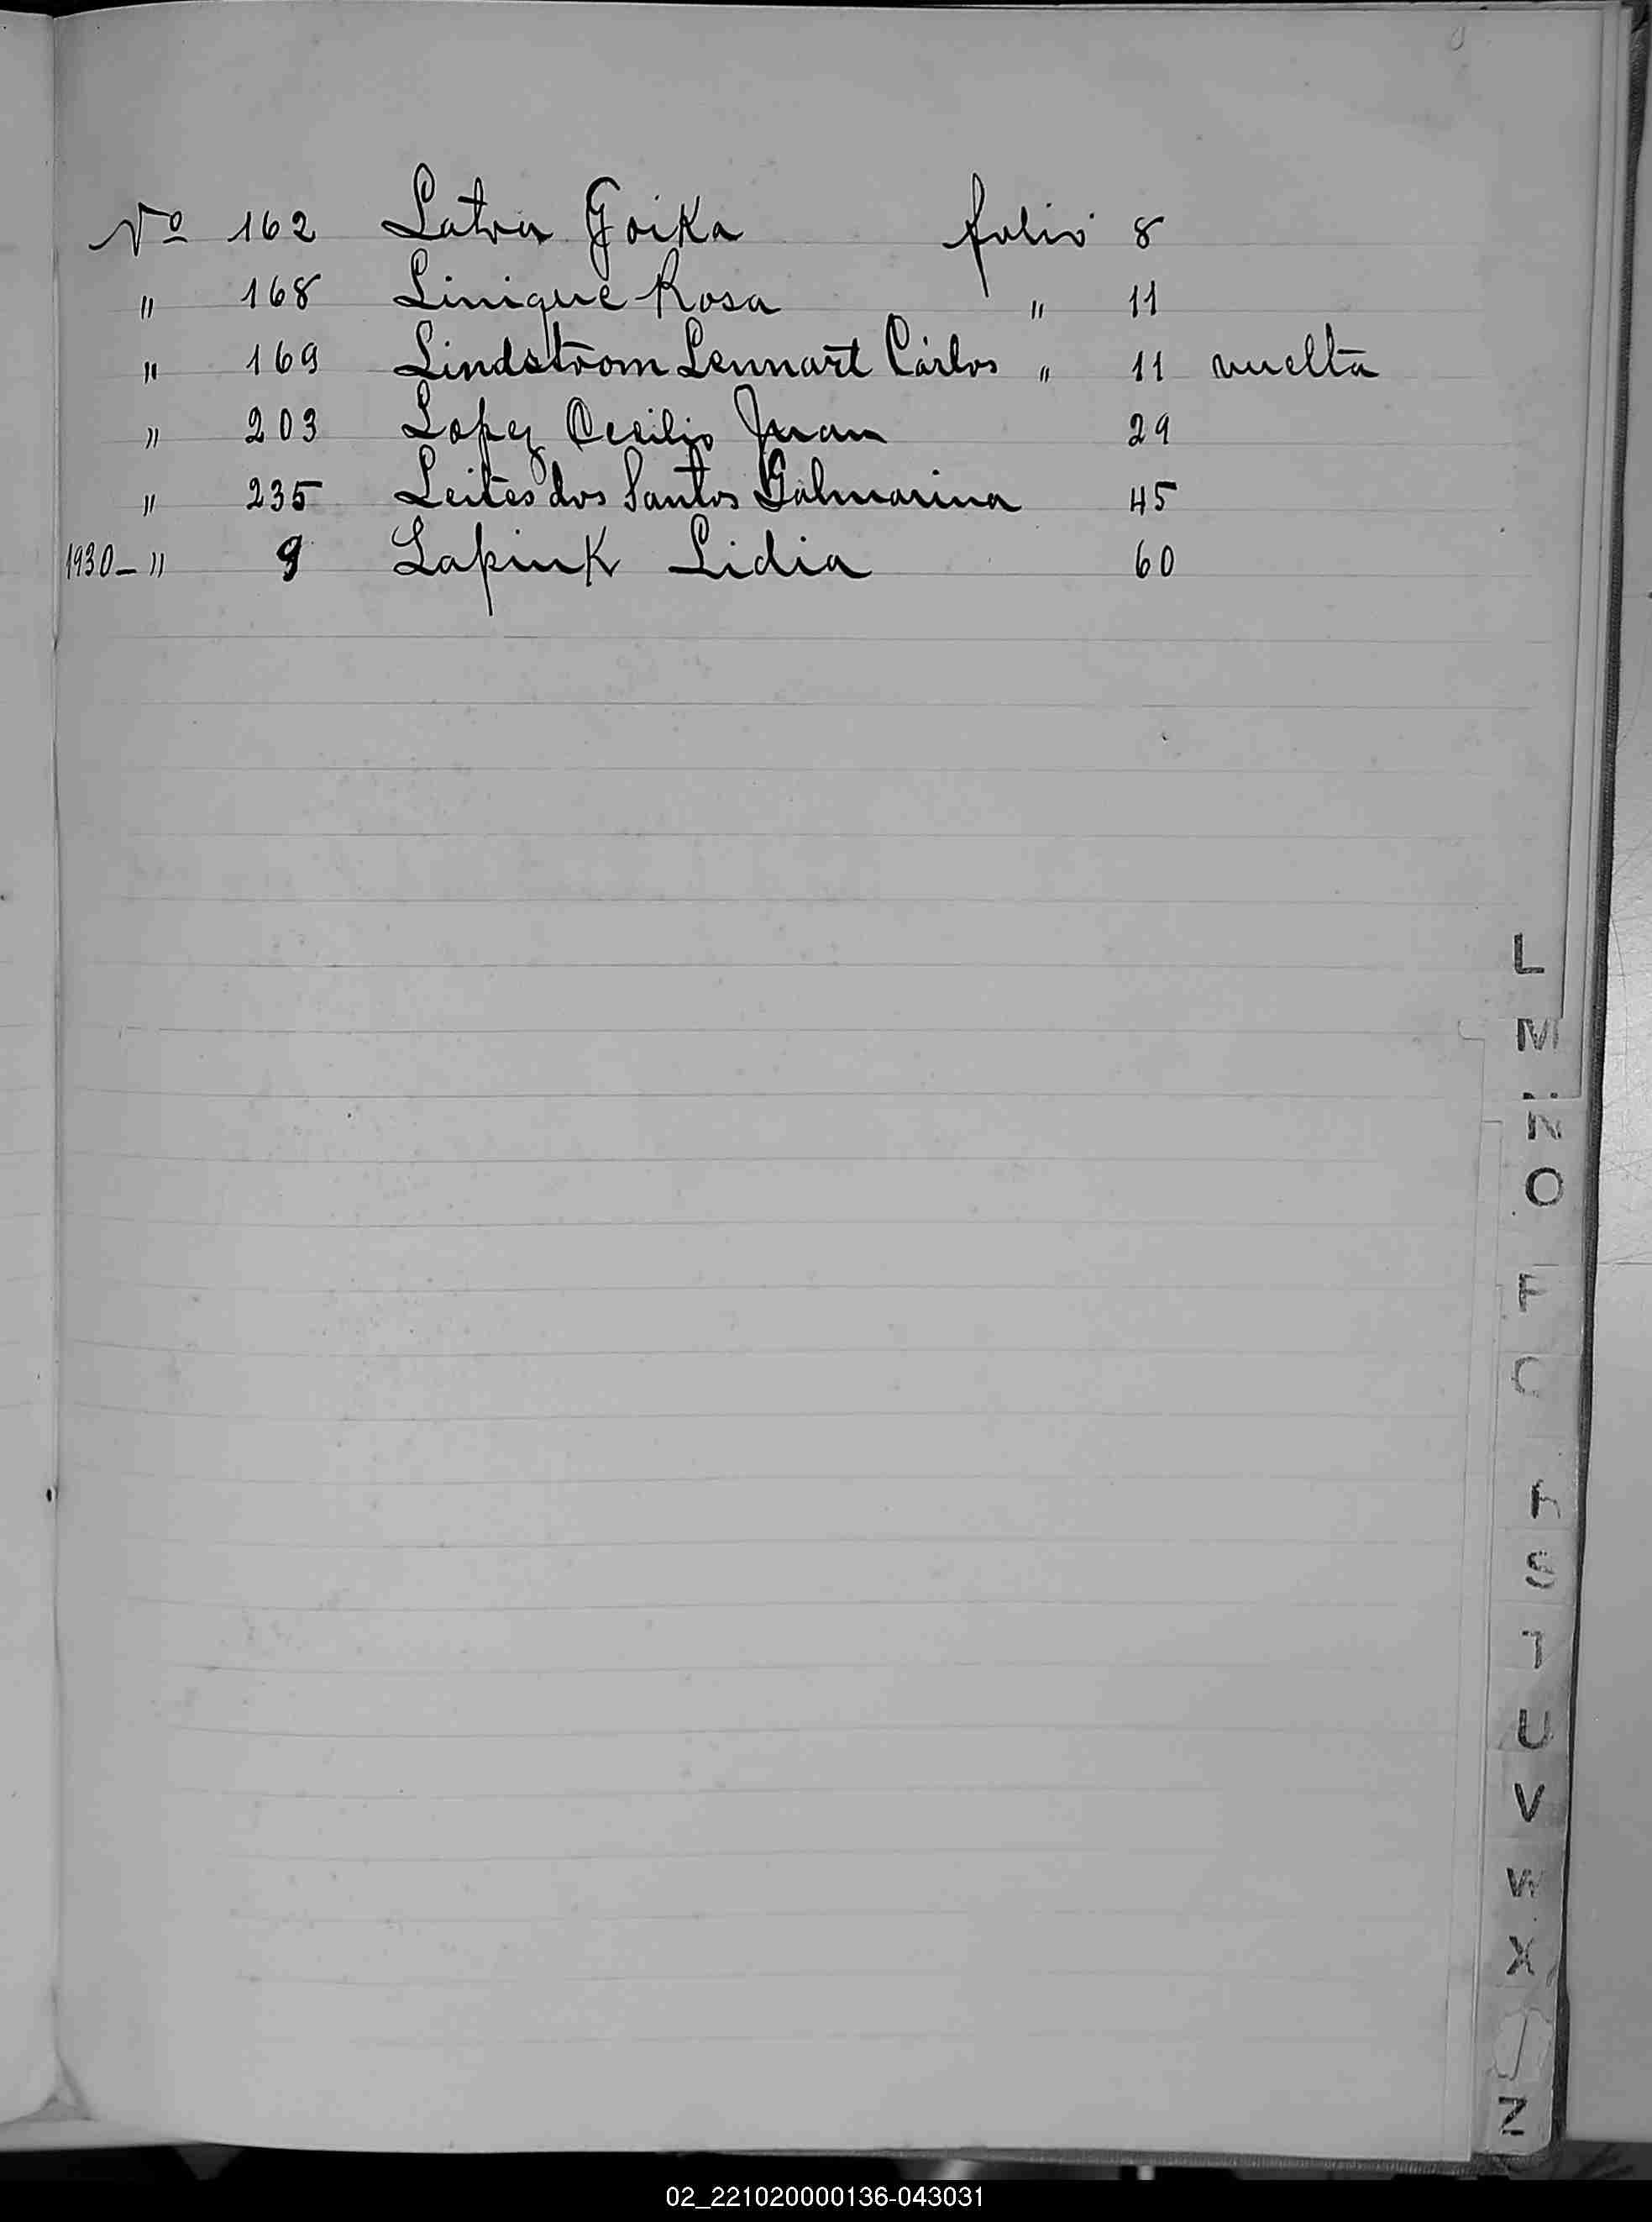 Nº 162 Latva Goika folio 8
" 168 Linique Rosa " 11
" 169 Lindstrom Lennart Cárlos " 11 vuelta
" 203 Lopez Cecilio Juan 29
" 235 Leites dos Santos Galmarina 45
1930 - " 9 Lapiuk Lidia 60
L
M
N
O
P
Q
R
S
T
U
V
W
X
Z
02_221020000136-043031